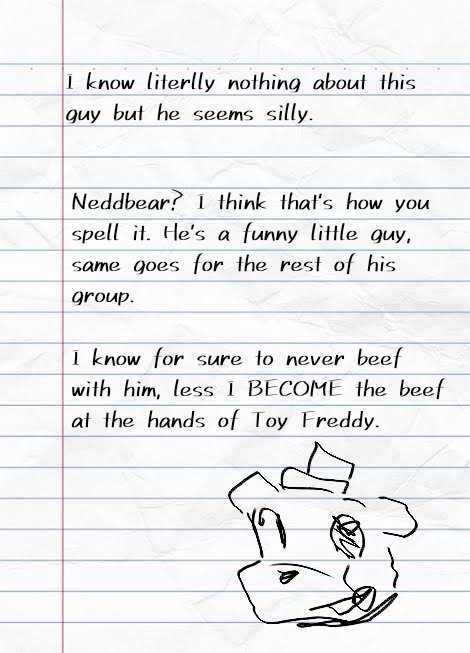 I know literlly nothing about this
guy but he seems silly.
Neddbear? I think that's how you
spell it. He's a funny little guy,
same goes for the rest of his
group.
I know for sure to never beef
with him, less I BECOME the beef
at the hands of Toy Freddy.